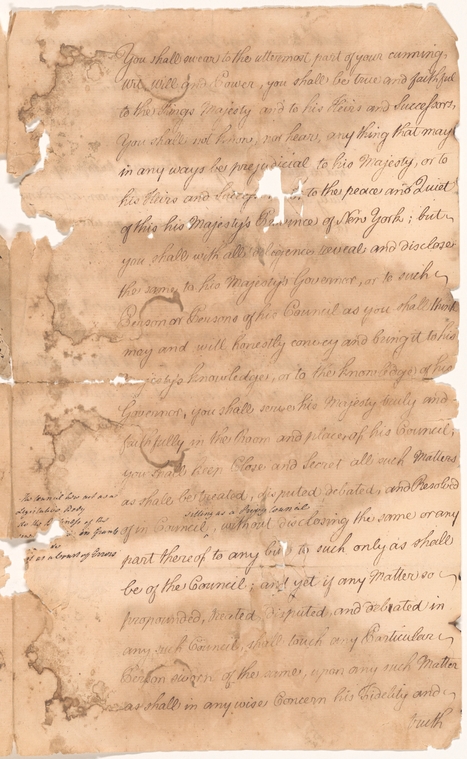 You shall swear to the uttermost part of your cunning,
wit, will and Power, you shall be true and faithful
to the Kings Majesty and to his Heirs and Successors,
You shall not know, nor hear, any thing that may
in any ways be prejudicial to his Majesty, or to
his Heirs and to the peace and Quiet
of this his Majesty's Province of New York; but
you shall with all diligence reveal and disclose
the same to his Majesty's Governor, or to such
Person or Persons of his Council as you shall think
may and will honestly convey and bring it to his
Majesty's knowledge, or to the knowledge of his
Governor, you shall serve his Majesty truly and
faithfully in the Room and place of his Council;
you shall keep Close and Secret all such Matters
as shall be treated, disputed debated, and Resolved
sitting as a Privy Council
of in Council, without disclosing the same or any
part thereof to any but to such only as shall
be of the Council; and yet if any Matter so
propounded, treated disputed, and debated in
any such Council, shall touch any Particular
Person sworn of the same, upon any such Matter
as shall in any wise Concern his Fidelity and
truth
The Council how act as a
Legislative Body
of the
in Grants
as a Court of Errors